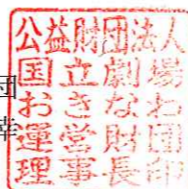 公益財団法人
国立劇場
おきなわ
運営財団
理事長印
団
幸